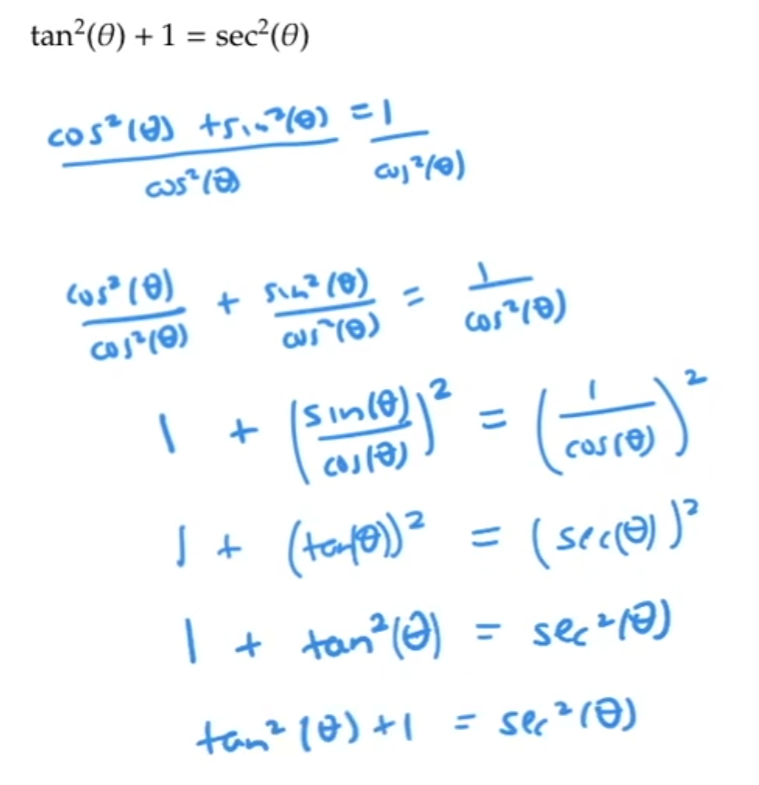 tan²(θ) + 1 = sec²(θ)
cos²(θ) + sin²(θ) = 1
cos²(θ) cos²(θ)
cos²(θ) + sin²(θ) = 1
cos²(θ) cos²(θ) cos²(θ)
1 + (sin(θ)/cos(θ))² = (1/cos(θ))²
1 + (tan(θ))² = (sec(θ))²
1 + tan²(θ) = sec²(θ)
tan²(θ) + 1 = sec²(θ)